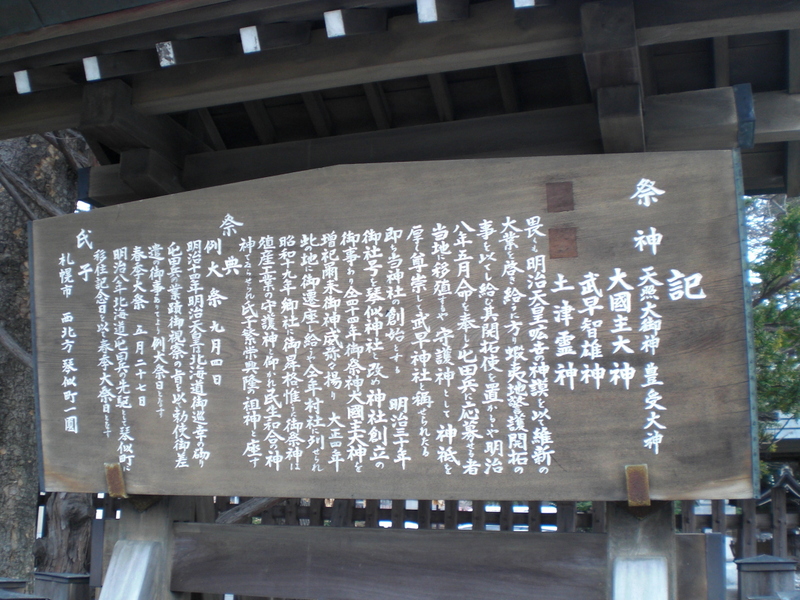 記
祭神 天照大御神 豊受大神
大國主大神
武早智雄神
土津霊神
畏くも明治天皇宏 神謨を以て維新の
大業を啓き給ふに方り蝦夷地 護開拓の
事を以て給ひ其開拓使を置かるゝや明治
八年五月命を奉じ屯田兵に応募せる者
当地に移殖するや守護神として神祇を
厚く尊崇し武早神社と称せられたる
即ち当神社の創始とする 明治三十年
御社号を琴似神社と改め神社創立の
御事あり 仝四十四年御祭神大國主大神を
増祀爾来御神威弥々揚り 大正四年
此の地に御遷座し給ふ 仝年村社に列せられ
昭和十九年郷社に御昇格惟ふに御祭神は
殖産工業の守護神と仰がれ民生和合の神
神と せられ氏子繁栄興隆の祖神と座す
祭典
例大祭 九月四日
明治十四年明治天皇北海道御巡幸の砌り
屯田兵の業蹟御視察の旨を以て勅使御差
遣の御事あり 例大祭日となす
春季大祭 五月二十七日
明治八年北海道屯田兵の先記として琴似町に
移住記念日を以て春季大祭日となす
氏子
札幌市 西北方 琴似町一圓